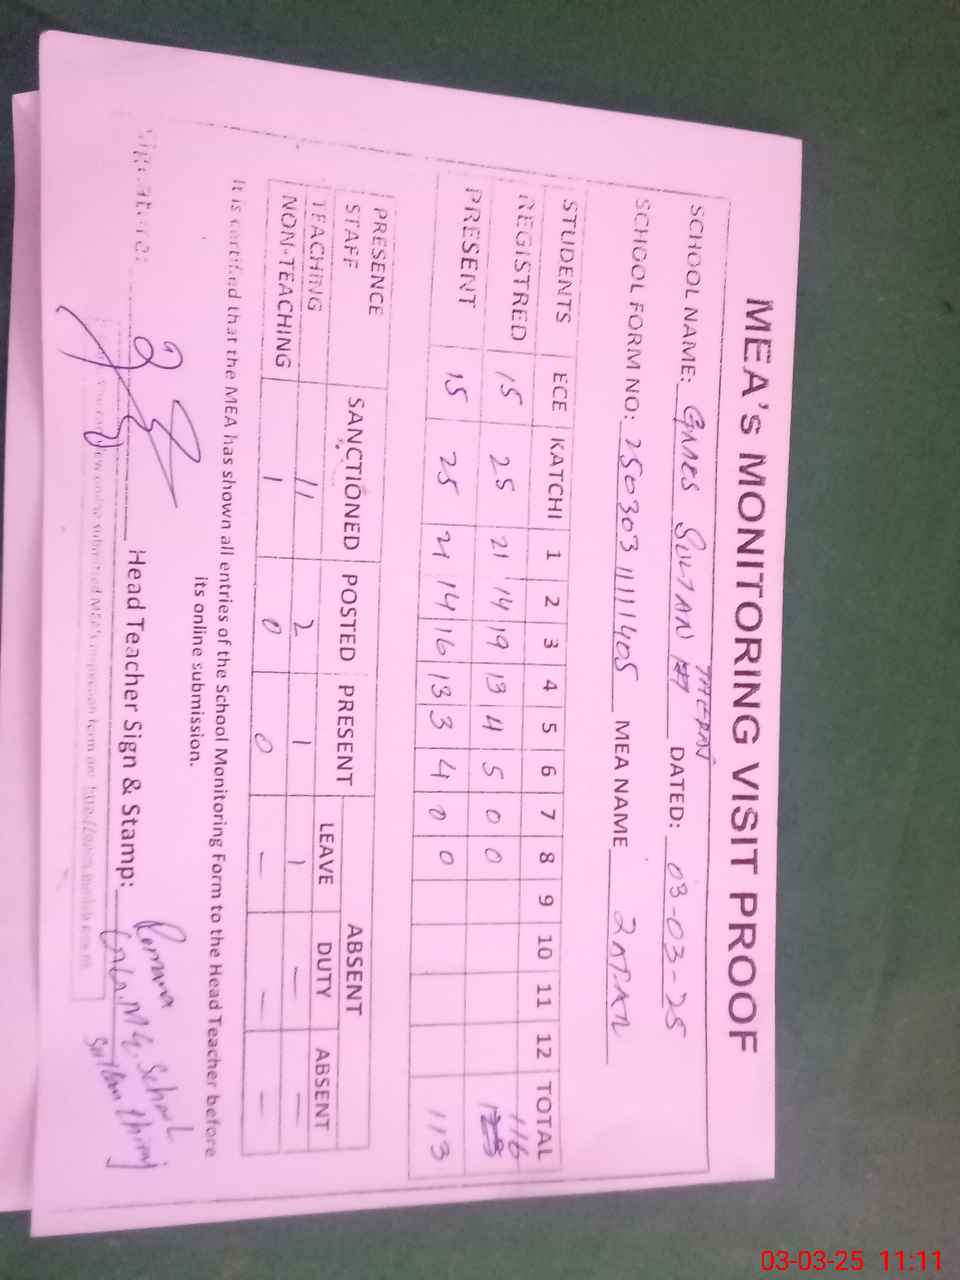 MEA's MONITORING VISIT PROOF
SCHOOL NAME: GMES SULTAN THERAJ DATED: 03-03-25
SCHOOL FORM NO: 250303 11111405 MEA NAME
STUDENTS ECE KATCHI 1 2 3 4 5 6 7 8 9 10 11 12 TOTAL
REGISTRED 15 25 21 14 19 13 4 5 0 0 116
PRESENT 15 25 21 14 16 13 3 4 0 0 113
PRESENCE STAFF SANCTIONED POSTED PRESENT ABSENT
LEAVE DUTY ABSENT
TEACHING 11 2 1 1 — —
NON-TEACHING 1 0 0 — — —
It is certified that the MEA has shown all entries of the School Monitoring Form to the Head Teacher before
its online submission.
Signature: Head Teacher Sign & Stamp:
School
03-03-25 11:11